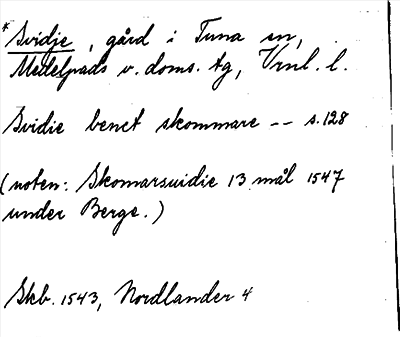 * Svidje, gård i Tuna sn,
Medelpads v. doms. tg, Vrnl. l.
Svidie benet skommare -- s. 128
(noten: Skomarsuidie 13 mål 1547
under Berge.)
Skb. 1543, Nordlander 4